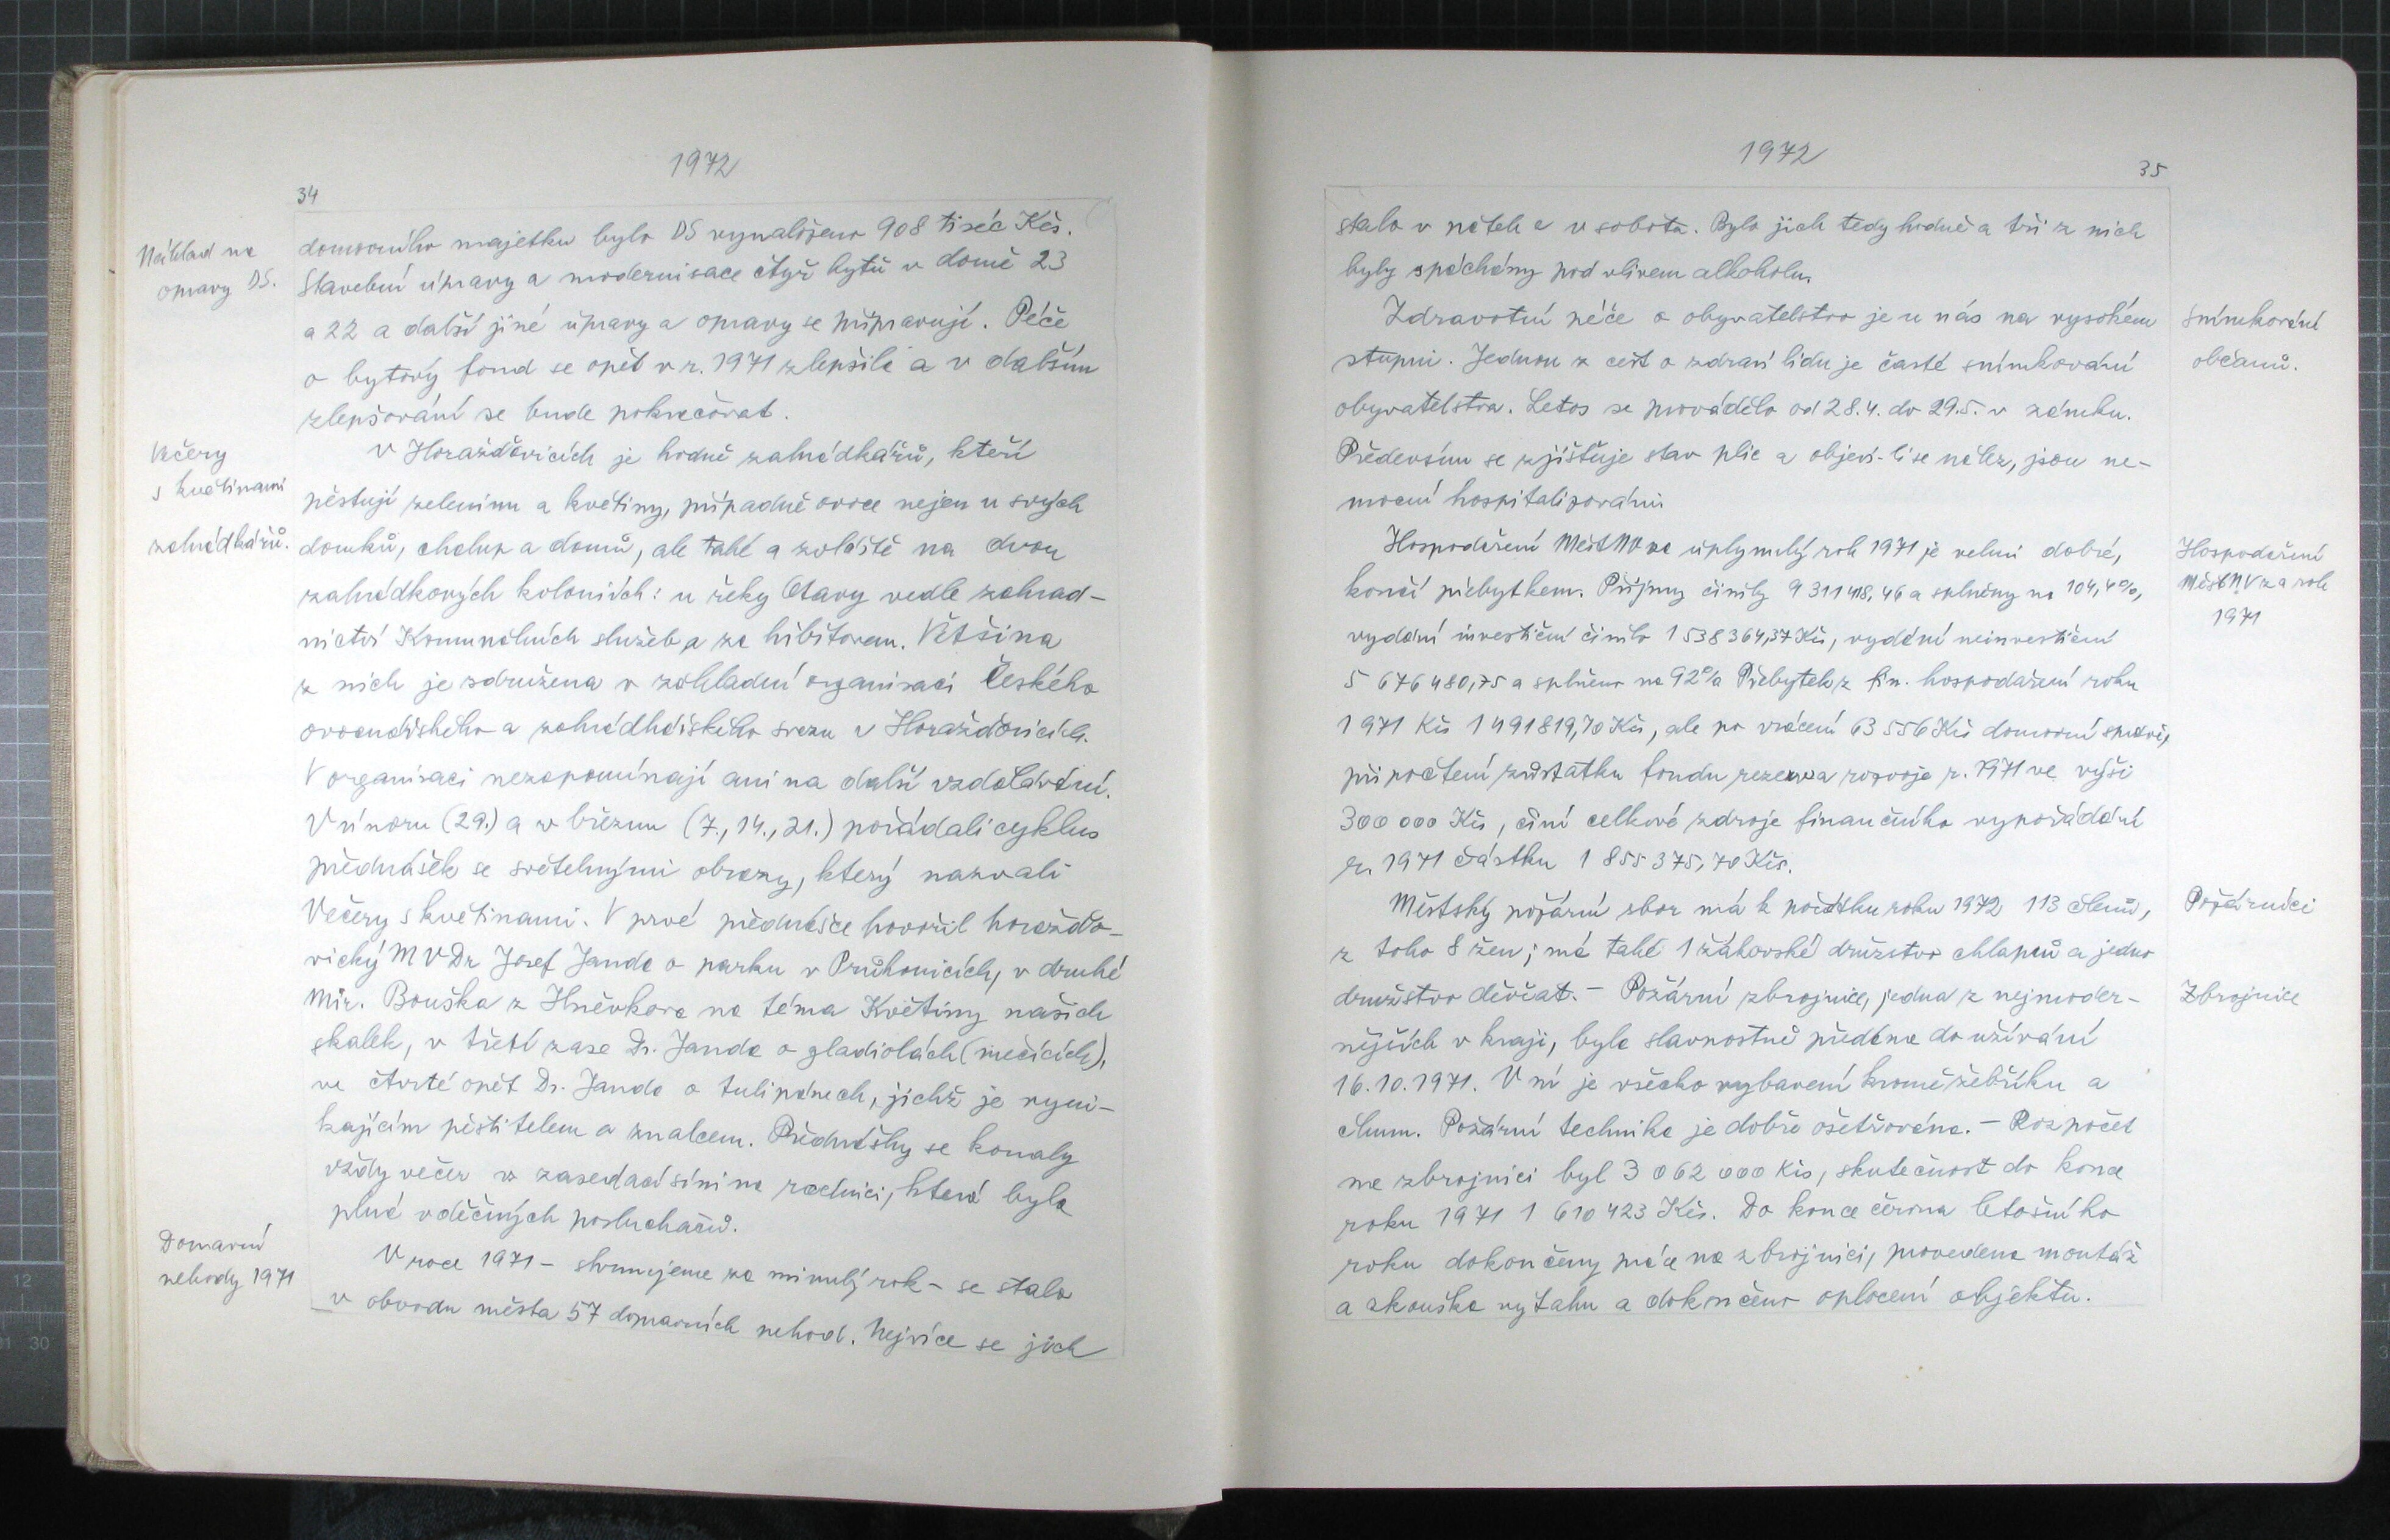 1972
34
Náklad na
opravy DS.
domovního majetku bylo DS vynaloženo 908 tisíc Kčs.
Stavební úpravy a modernisace čtyř bytů v domě 23
a 22 a další jiné úpravy a opravy se připravují. Péče
o bytový fond se opět v r. 1971 zlepšila a v dalším
zlepšování se bude pokračovat.
Večery
s květinami
zahrádkářů.
V Horažďovicích je hodně zahrádkářů, kteří
pěstují zeleninu a květiny, případně ovoce nejen u svých
domků, chalup a domů, ale také a zvláště na dvou
zahrádkových koloniích: u řeky Otavy vedle zahrad-
nictví Komunálních služeb a za hřbitovem. Většina
z nich je sdružena v základní organisaci Českého
ovocnářského a zahrádkářského svazu v Horažďovicích.
V organisaci nezapomínají ani na další vzdělávání.
V únoru (29.) a v březnu (7., 14., 21.) pořádali cyklus
přednášek se světelnými obrazy, který nazvali
Večery s květinami. V prvé přednášce hovořil horažďo-
vický MVDr Josef Janda o parku v Průhonicích, v druhé
Mir. Bouška z Hněvkova na téma Květiny našich
skalek, v třetí zase Dr. Janda o gladiolách (mečících),
ve čtvrté opět Dr. Janda o tulipánech, jichž je vyni-
kajícím pěstitelem a znalcem. Přednášky se konaly
vždy večer v zasedací síni na radnici, která byla
plná vděčných posluchačů.
Domovní
nehody 1971
V roce 1971 - shrnujeme za minulý rok - se stalo
v obvodu města 57 dopravních nehod. Nejvíce se jich
1972
35
stalo v pátek a v sobotu. Bylo jich tedy hodně a tři z nich
byly spáchány pod vlivem alkoholu.
Zdravotní péče o obyvatelstvo je u nás na vysokém
stupni. Jednou z cest o zdraví lidu je časté snímkování
obyvatelstva. Letos se provádělo od 28.4. do 29.5. v zámku.
Především se zjišťuje stav plic a objeví-li se nález, jsou ne-
mocní hospitalizováni
Snímkování
občanů.
Hospodaření MěstNV za uplynulý rok 1971 je velmi dobré,
končí přebytkem. Příjmy činily 9 311 418,46 a splněny na 104,4%,
vydání investiční činilo 1 538 364,37 Kčs, vydání neinvestiční
5 676 480,75 a splněno na 92% Přebytek z fin. hospodaření roku
1971 Kčs 1 491 819,70 Kčs, ale po vrácení 63 556 Kčs domovní správě,
připočtení zůstatku fondu rezerv a rozvoje r. 1971 ve výši
300 000 Kčs, činí celkové zdroje finančního vypořádání
r. 1971 částku 1 855 375,70 Kčs.
Hospodaření
MěstNV za rok
1971
Městský požární sbor má k počátku roku 1972 113 členů,
z toho 8 žen; má také 1 žákovské družstvo chlapců a jedno
družstvo děvčat. - Požární zbrojnice, jedna z nejmoder-
nějších v kraji, byla slavnostně předána do užívání
16.10.1971. V ní je všecko vybavení kromě žebříku a
člunu. Požární technika je dobře ošetřována. - Rozpočet
na zbrojnici byl 3 062 000 Kčs, skutečnost do konce
roku 1971 1 610 423 Kčs. Do konce června letošního
roku dokončeny práce na zbrojnici, provedena montáž
a zkouška výtahu a dokončeno oplocení objektu.
Požárníci
Zbrojnice